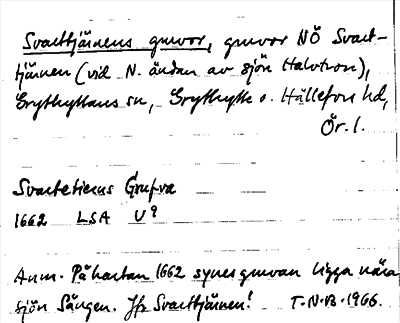 Svarttjärnens gruvor, gruvor NÖ Svart-
tjärnen (vid N. ändan av sjön Halvtron),
Grythyttans sn, Grythytte o. Hällefors hd,
Ör. l.
Svartetiens Grufva
1662 LSA U9
Anm. På kartan 1662 synes gruvan ligga nära
sjön Sången. Jfr Svarttjärnen! T.N.B. 1966.